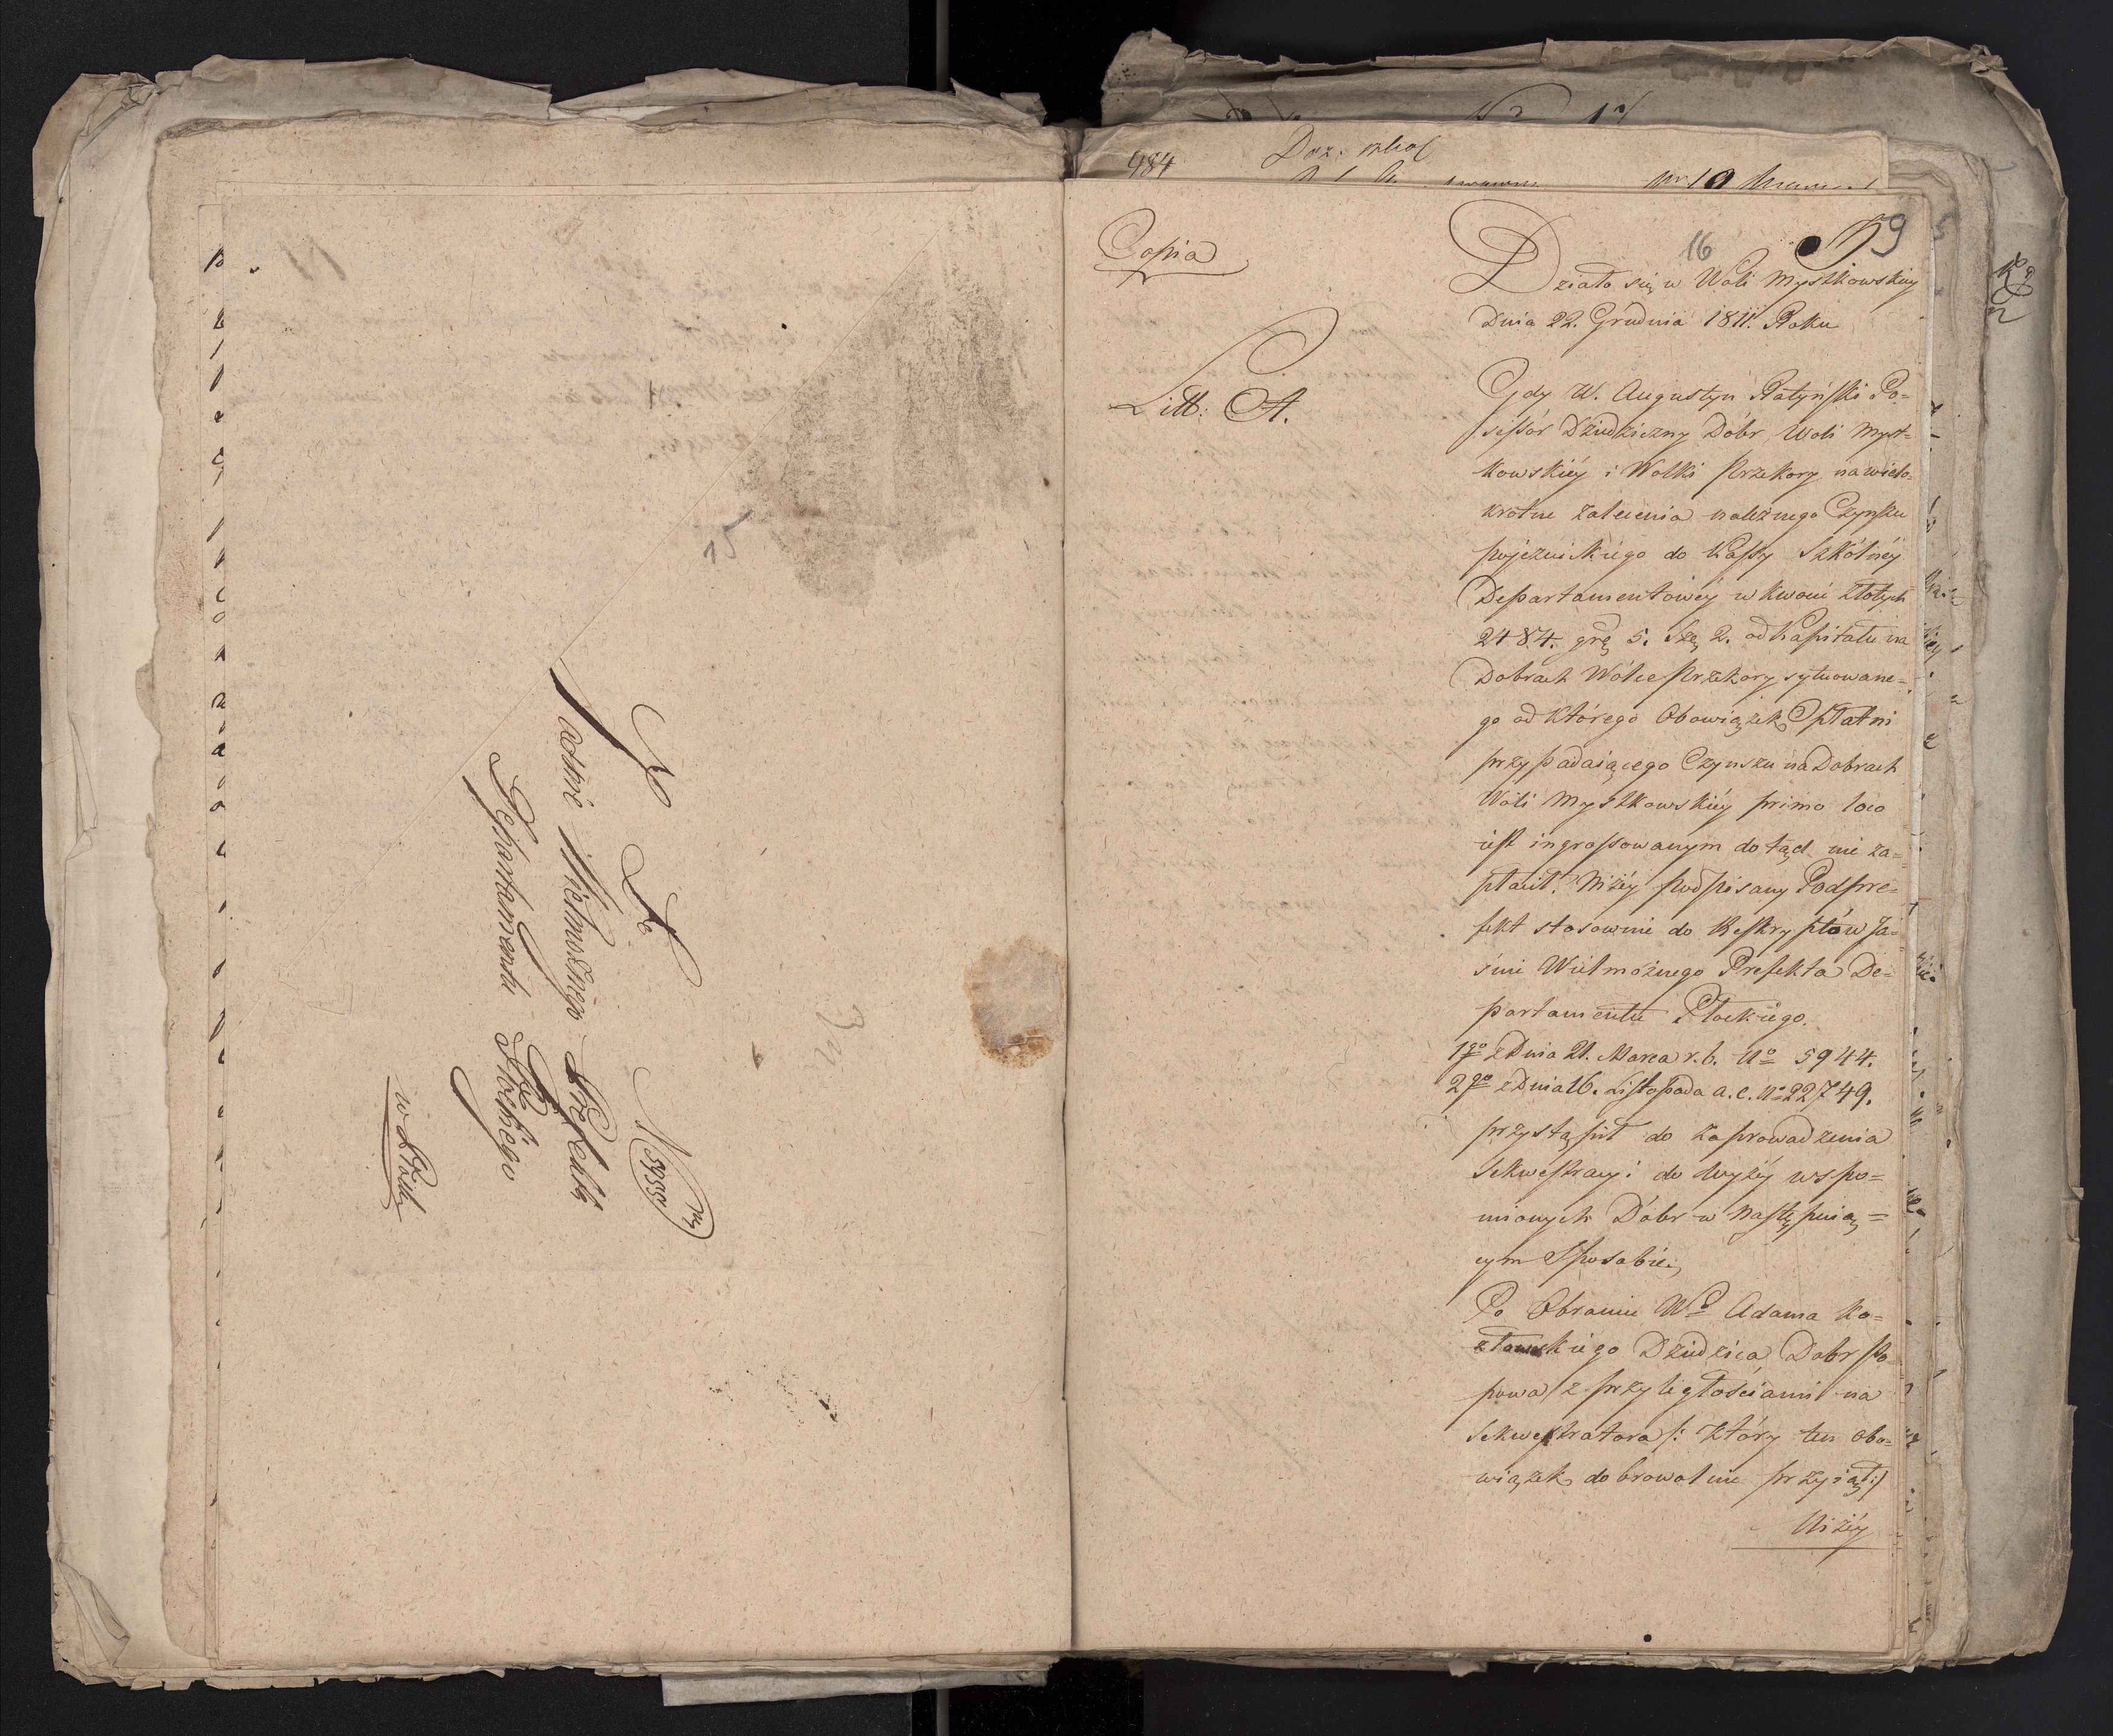 15
Do
Jaśnie Wielmożnego Prefekta
Departamentu Płockiego
w Płocku
484
16
9
Copia
Litt: A.
Działo się w Woli Mystkowskiey
Dnia 22. Grudnia 1811. Roku
Gdy W. Augustyn Ratyński Po=
sessór Dziedziczny Dóbr Woli Myst=
kowskiéy i Wolki Przekory na wielo=
krotne zalecenia należnego Czynszu
pojezuickiego do Kassy Szkólnéy
Departamentowéy w kwocie złotych
2484. grę 5. Szę 2. od Kapitału na
Dobrach Wólce Przekory sytuowane=
go od którego Obowiązek Opłatni
przypadaiącego Czynszu na Dobrach
Woli Mystkowskiéy primo loco
iest ingrossowanym dotąd nie za=
płacił. Niżéy podpisany Podpre=
fekt stosownie do Reskryptów Ja=
śnie Wielmożnego Prefekta De=
partamentu Płockiego.
1go z Dnia 21. Marca r. b. No 5944.
2go z Dnia 16. Listopada a. c. No 22749.
przystąpił do zaprowadzenia
Sekwestracyi do wyżéy wspo=
mionych Dóbr w następuią=
cym Sposobie.
Po Obraniu Wo Adama Ko=
złowskiego Dziedzica Dobr Po=
powa z przyległościami na
Sekwestratora /: który ten obo=
wiązek dobrowolnie przyiął :/
Niżéy